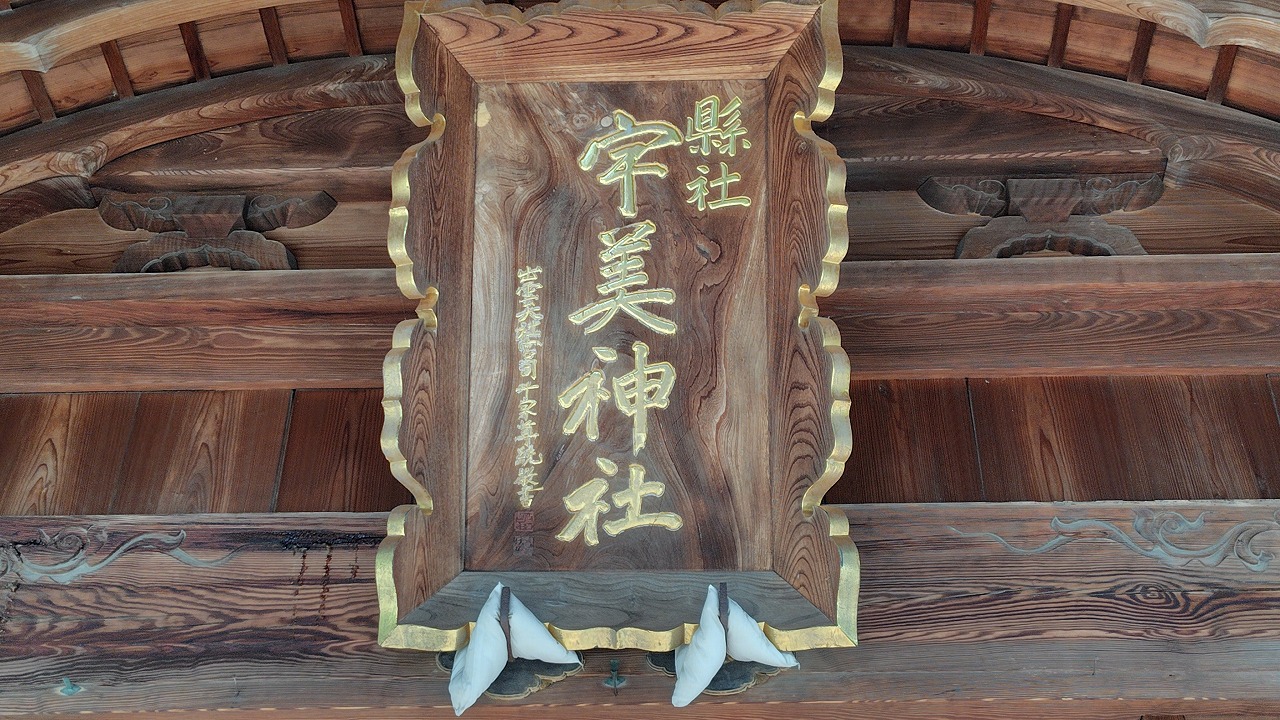 縣社
宇美神社
出雲大社宮司千家尊統敬書